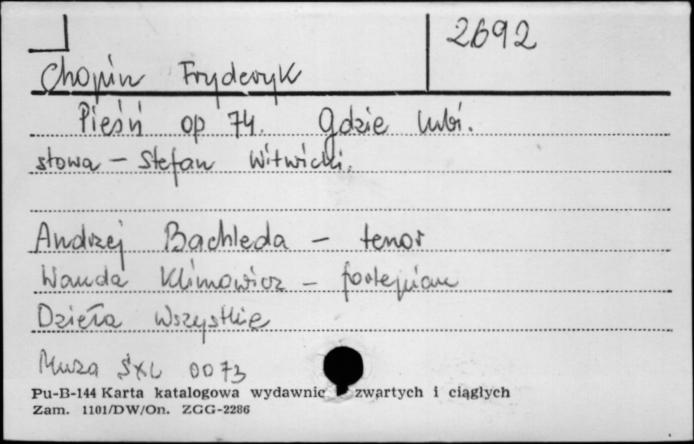 2692
Chopin Fryderyk
Pieśń op 74. Gdzie lubi.
słowa - Stefan Witwicki.
Andrzej Bachleda - tenor
Wanda Klimowicz - fortepian
Dzieła Wszystkie
Muza SXL 0073
Pu-B-144 Karta katalogowa wydawnic zwartych i ciągłych
Zam. 1101/DW/On. ZGG-2286